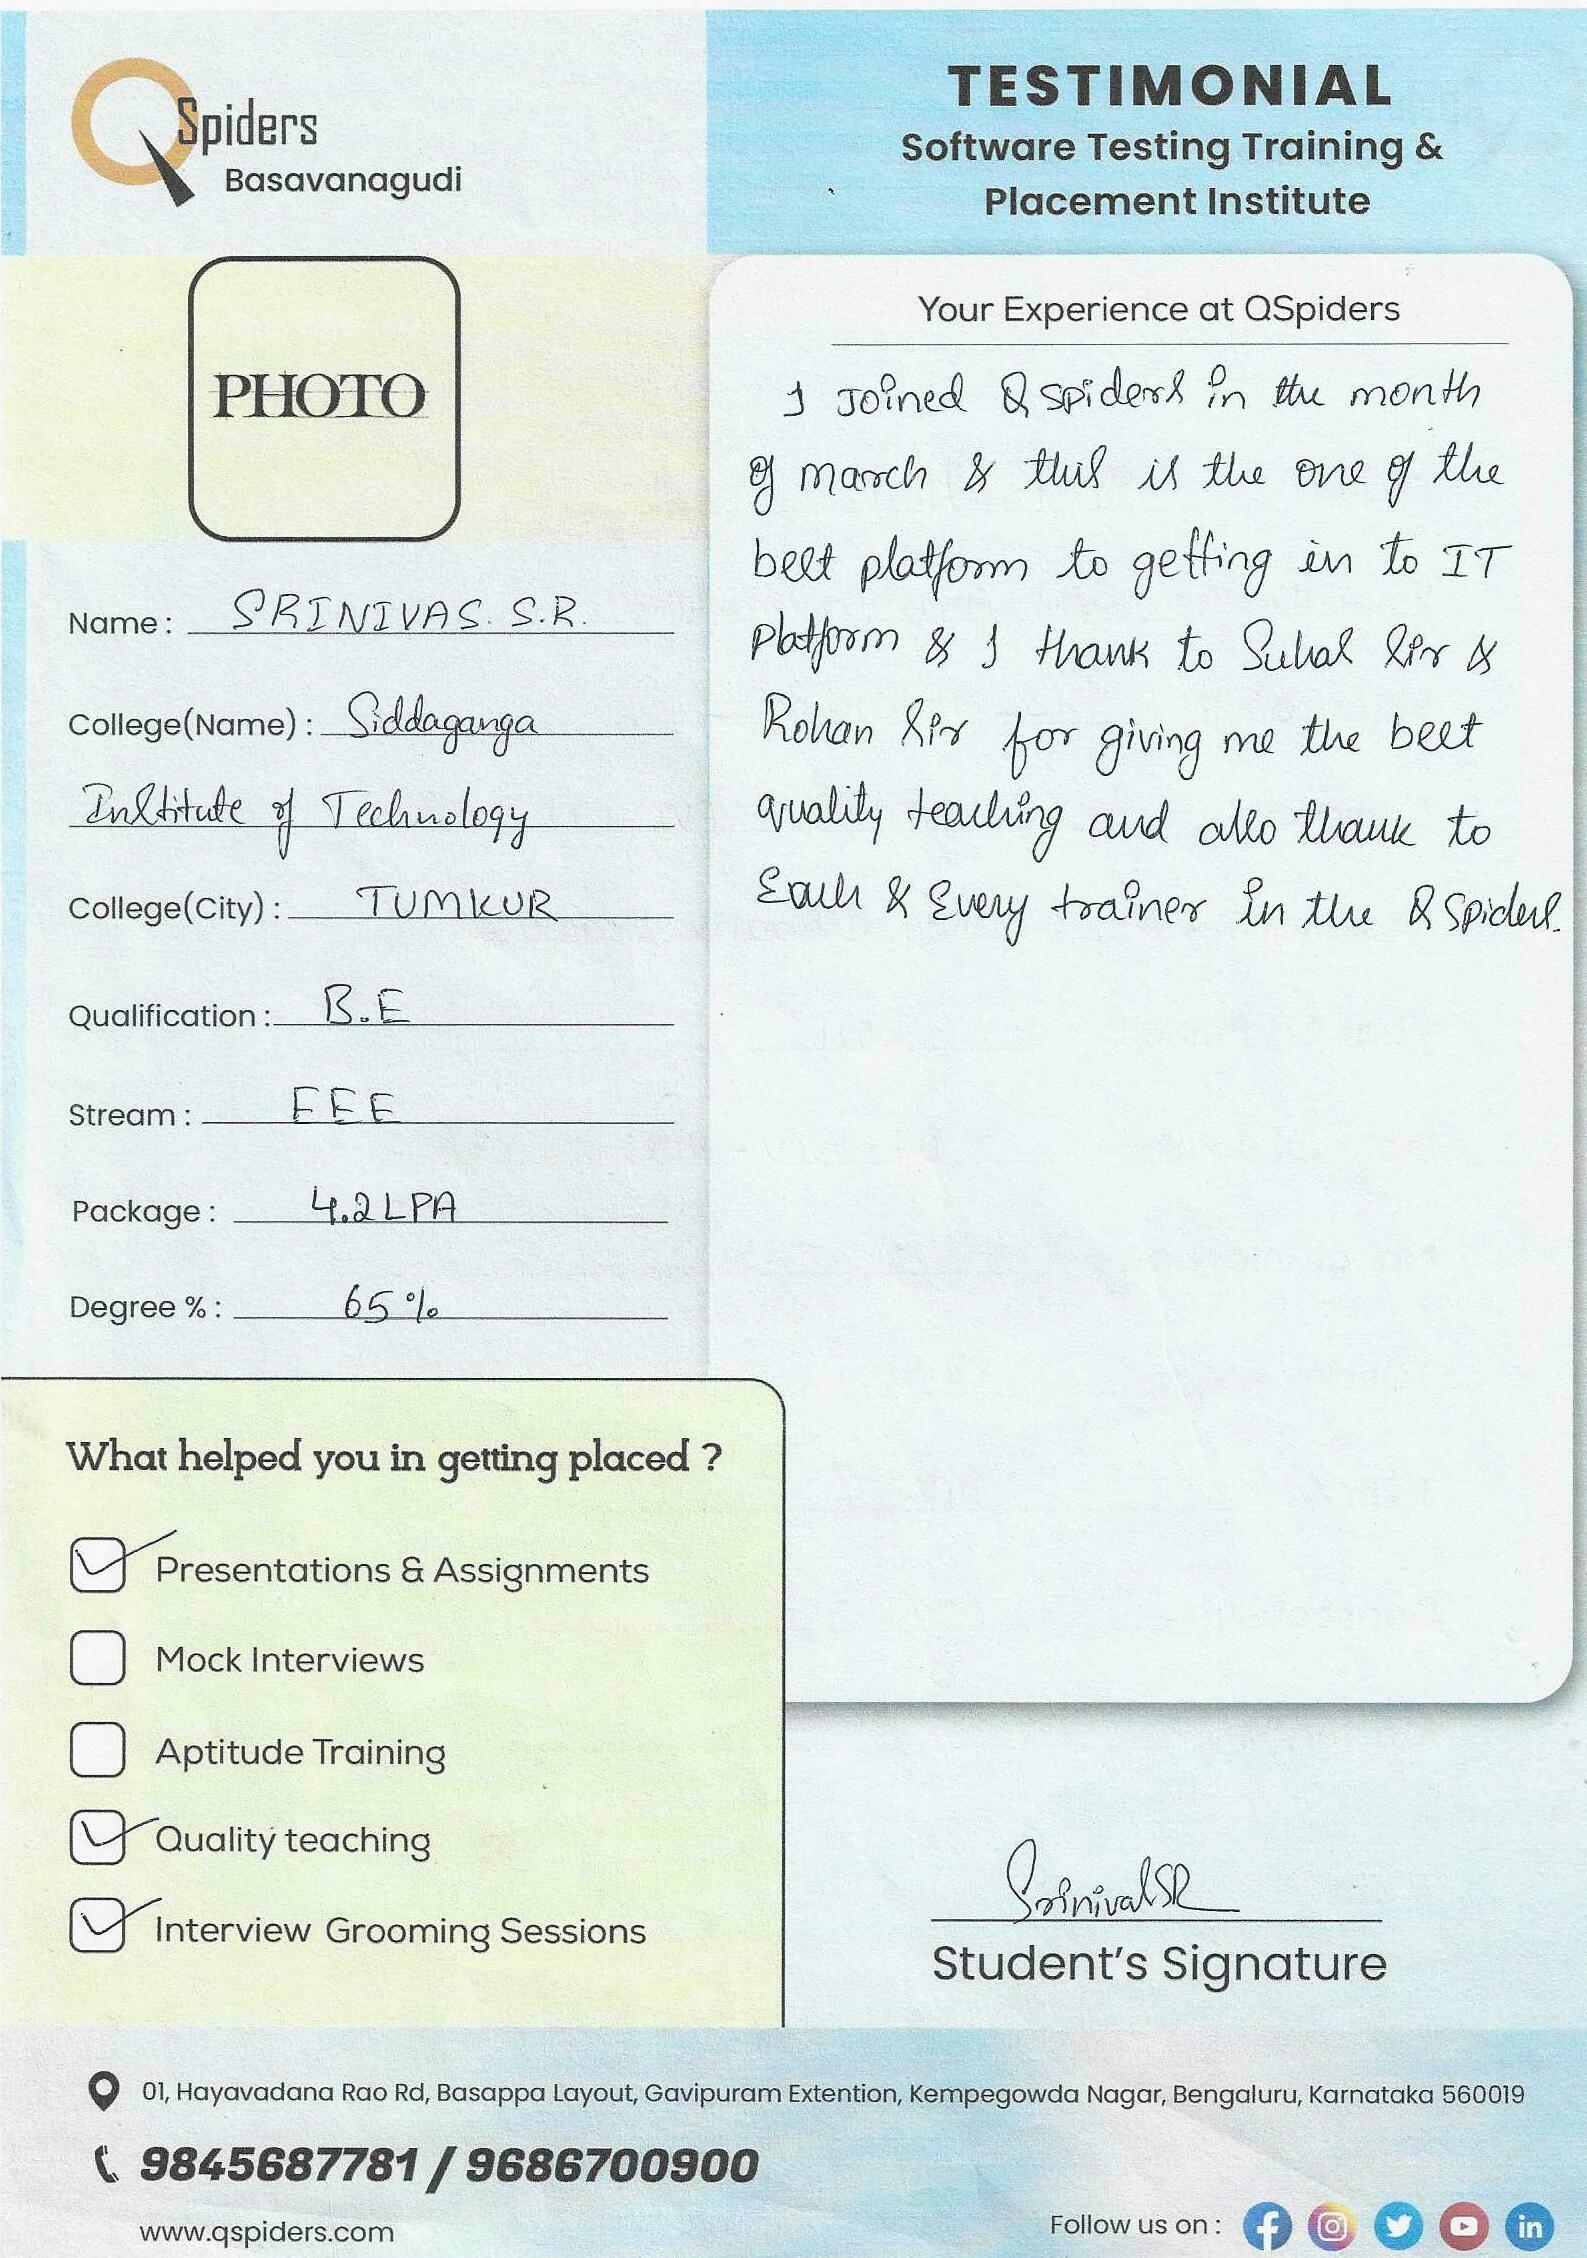 QSpiders
Basavanagudi
TESTIMONIAL
Software Testing Training &
Placement Institute
PHOTO
Name: SRINIVAS. S.R.
College(Name): Siddaganga
Institute of Technology
College(City): TUMKUR
Qualification: B.E
Stream: EEE
Package: 4.2 LPA
Degree %: 65 %
Your Experience at QSpiders
I Joined Q spiders in the month
of march & this is the one of the
best platform to getting in to IT
Platform & I thank to Suhas Sir &
Rohan Sir for giving me the best
quality teaching and also thank to
Each & Every trainer in the Q Spiders.
What helped you in getting placed ?
Presentations & Assignments
Mock Interviews
Aptitude Training
Quality teaching
Interview Grooming Sessions
Srinivas SR
Student's Signature
01, Hayavadana Rao Rd, Basappa Layout, Gavipuram Extention, Kempegowda Nagar, Bengaluru, Karnataka 560019
9845687781 / 9686700900
www.qspiders.com
Follow us on :